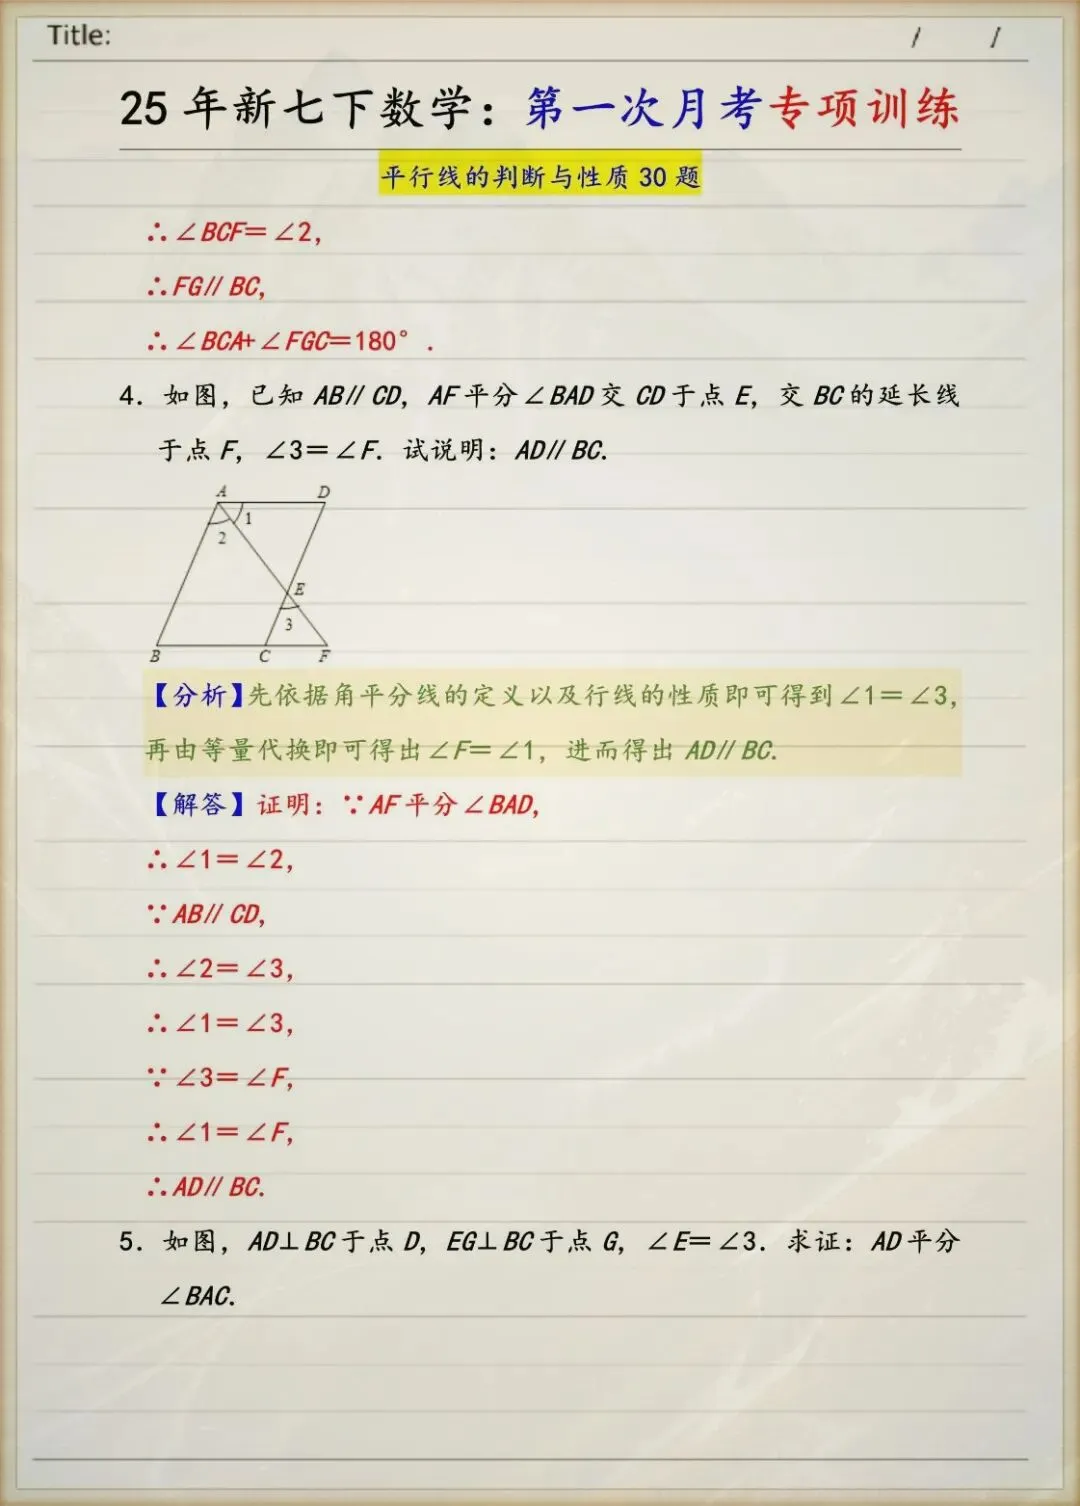 Title: / /
25年新七下数学：第一次月考专项训练
平行线的判断与性质30题
∴∠BCF＝∠2，
∴FG∥BC，
∴∠BCA+∠FGC＝180°．
4．如图，已知AB∥CD，AF平分∠BAD交CD于点E，交BC的延长线
于点F，∠3＝∠F．试说明：AD∥BC．
A D
1
2
E
3
B C F
【分析】先依据角平分线的定义以及行线的性质即可得到∠1＝∠3，
再由等量代换即可得出∠F＝∠1，进而得出AD∥BC．
【解答】证明：∵AF平分∠BAD，
∴∠1＝∠2，
∵AB∥CD，
∴∠2＝∠3，
∴∠1＝∠3，
∵∠3＝∠F，
∴∠1＝∠F，
∴AD∥BC．
5．如图，AD⊥BC于点D，EG⊥BC于点G，∠E＝∠3．求证：AD平分
∠BAC．